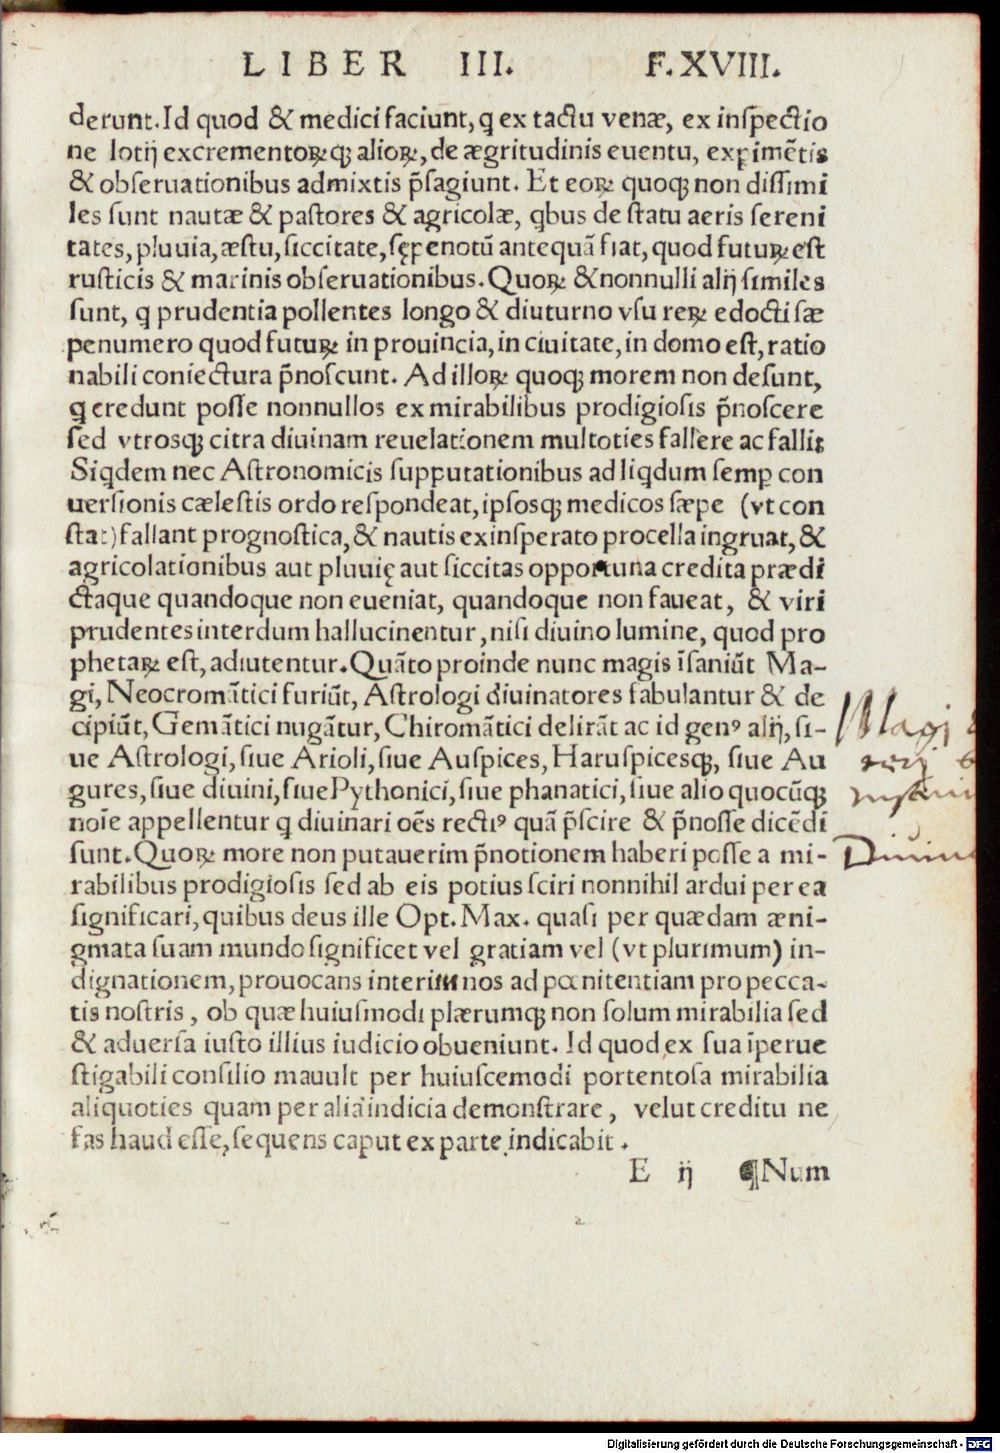 LIBER III. F.XVIII.
derunt. Id quod & medici faciunt, ꝗ ex tactu venæ, ex inſpectio
ne lotij excrementoꝝꝗ; alioꝝ, de ægritudinis euentu, exꝑimētis
& obſeruationibus admixtis p̄ſagiunt. Et eoꝝ quoꝗ; non diſſimi
les ſunt nautæ & paſtores & agricolæ, ꝗbus de ſtatu aeris ſereni
tates, pluuia, æſtu, ſiccitate, ſęꝑenotū antequā fiat, quod futuꝝ eſt
ruſticis & marinis obſeruationibus. Quoꝝ & nonnulli alij ſimiles
ſunt, ꝗ prudentia pollentes longo & diuturno vſu reꝝ edocti ſæ
penumero quod futuꝝ in prouincia, in ciuitate, in domo eſt, ratio
nabili coniectura p̄noſcunt. Ad illoꝝ quoꝗ; morem non deſunt,
ꝗ credunt poſſe nonnullos ex mirabilibus prodigioſis p̄noſcere
ſed vtroſꝗ; citra diuinam reuelationem multoties fallere ac falli:
Siꝗdem nec Aſtronomicis ſupputationibus ad liꝗdum ſemꝑ con
uerſionis cæleſtis ordo reſpondeat, ipſoſꝗ; medicos ſæpe (vt con
ſtat) fallant prognoſtica, & nautis exinſperato procella ingruat, &
agricolationibus aut pluuię aut ſiccitas opportuna credita prædi
ctaque quandoque non eueniat, quandoque non faueat, & viri
prudentes interdum hallucinentur, niſi diuino lumine, quod pro
phetaꝝ eſt, adiutentur. Quāto proinde nunc magis īſaniūt Ma-
gi, Neocromātici furiūt, Aſtrologi diuinatores fabulantur & de
cipiūt, Gemātici nugātur, Chiromātici delirāt ac id genꝰ alij, ſi-
ue Aſtrologi, ſiue Arioli, ſiue Auſpices, Haruſpiceſꝗ;, ſiue Au
gures, ſiue diuini, ſiue Pythonici, ſiue phanatici, ſiue alio quocūꝗ;
noīe appellentur ꝗ diuinari oēs rectiꝰ quā p̄ſcire & p̄noſſe dicēdi
ſunt. Quoꝝ more non putauerim p̄notionem haberi poſſe a mi-
rabilibus prodigioſis ſed ab eis potius ſciri nonnihil ardui per ea
ſignificari, quibus deus ille Opt. Max. quaſi per quædam æni-
gmata ſuam mundo ſignificet vel gratiam vel (vt plurimum) in-
dignationem, prouocans interim nos ad pœnitentiam pro pecca-
tis noſtris, ob quæ huiuſmodi plærumꝗ; non ſolum mirabilia ſed
& aduerſa iuſto illius iudicio obueniunt. Id quod ex ſua īperue
ſtigabili conſilio mauult per huiuſcemodi portentoſa mirabilia
aliquoties quam per alia indicia demonſtrare, velut creditu ne
fas haud eſſe, ſequens caput ex parte indicabit.
E ij ¶Num
Magi
Diuin
Digitalisierung gefördert durch die Deutsche Forschungsgemeinschaft - DFG